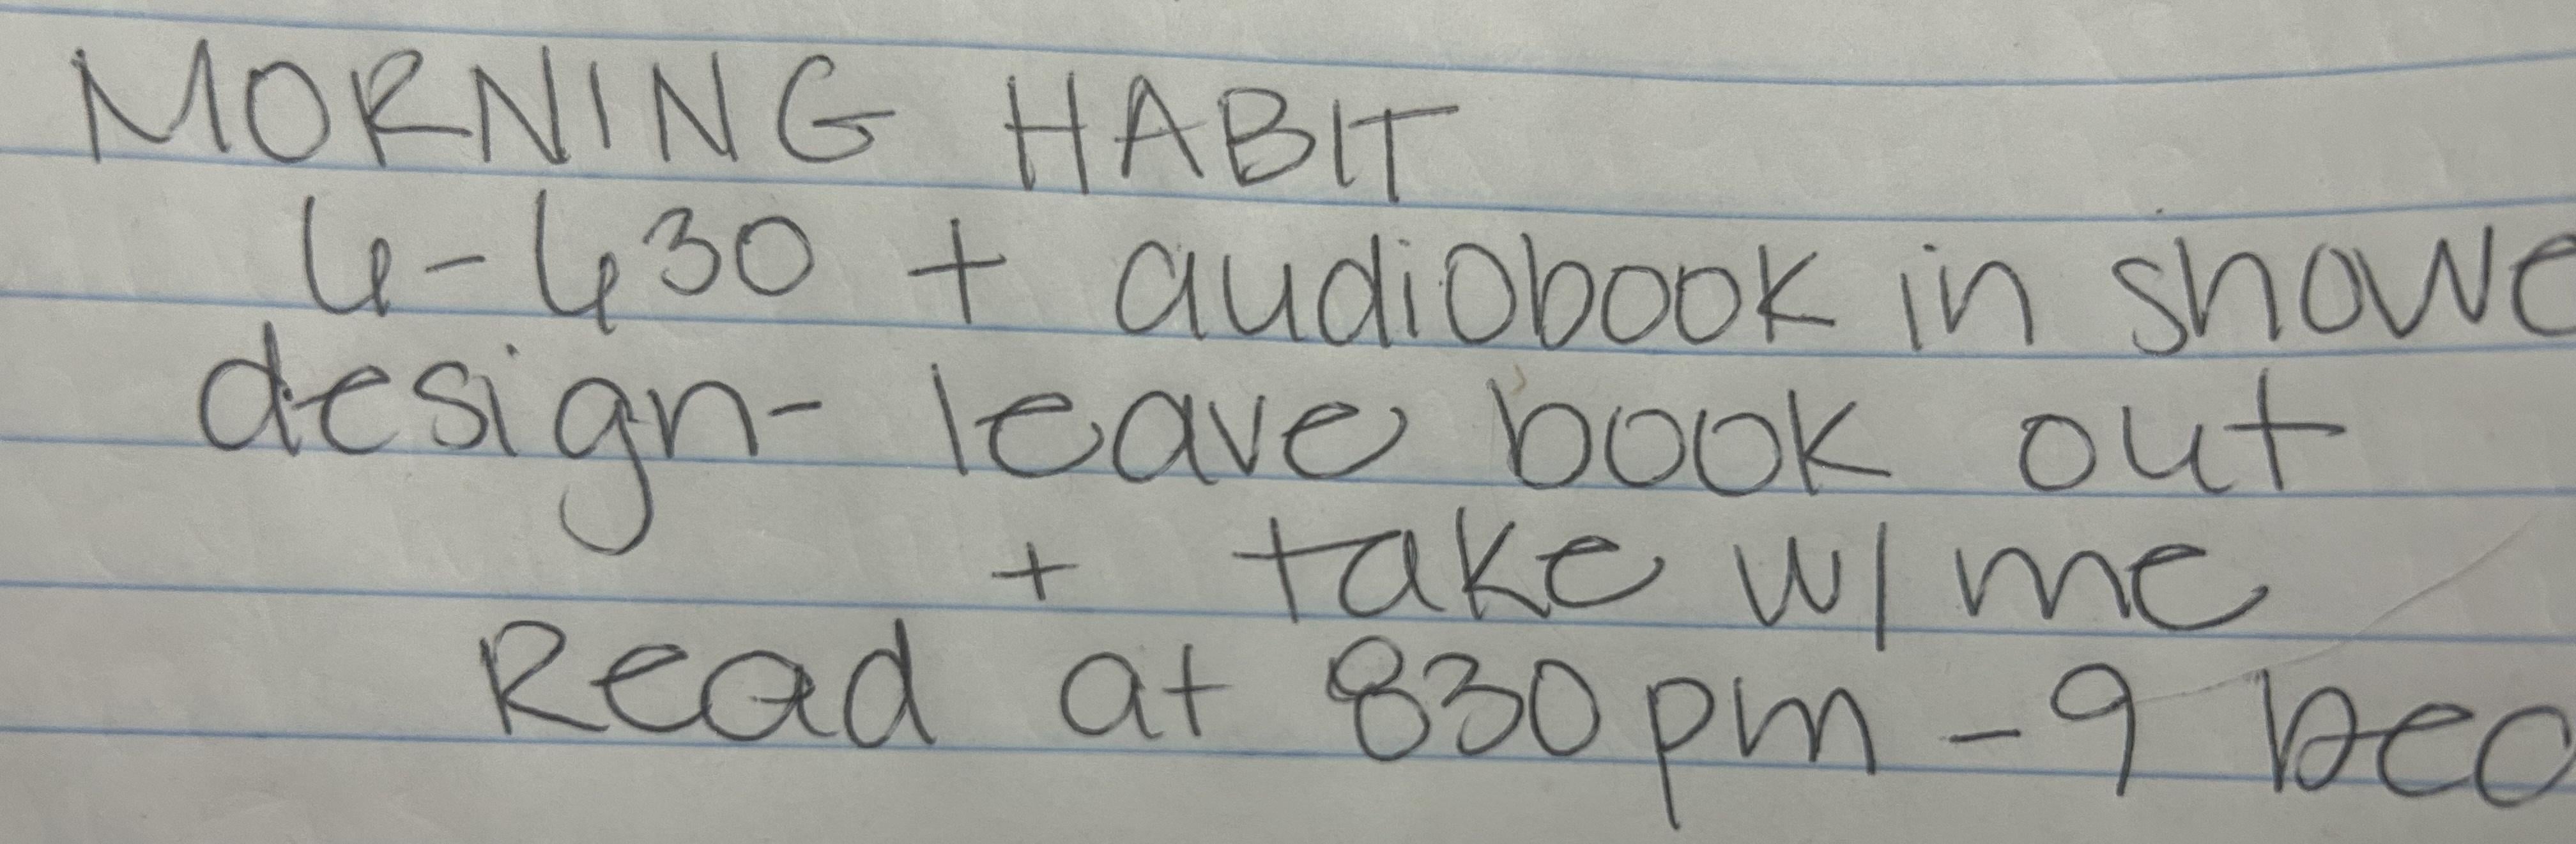 MORNING HABIT
4-430 + audiobook in showe
design- leave book out
+ take w/ me
Read at 830pm -9 bed